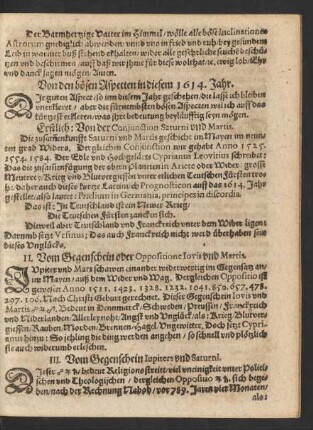 Der Barmhertzige Vatter im Himmel / wölle alle böse Inclinationes
Astrorum gnediglich abwenden / vnnd vns in fried vnd ruh bey gesundem
Leib in warer buß stehend erhalten / wider alle gefährliche seuche beschü-
tzen vnd beschirmen / auff daß wir ihme für diese wolthat / ewig lob / Ehr
vnd danck sagen mögen / Amen.
Von den bösen Aspecten in diesem 1614. Jahr.
guten Aspect so inn diesem Jahr geschehen / die laß ich bleiben
vnerkleret / aber die fürnembsten bösen Aspecten wil ich auff das
kürtzest erkleren / was ihre bedeutung beyläufftig seyn mögen.
Erstlich: Von der Conjunction Saturni vnd Martis.
Die zusammenkunfft Saturni vnd Martis geschicht im Mayen im neun-
ten grad Widers. Dergleichen Conjunction wie gehabt Anno 1525.
1554. 1584. Der Edle vnd Hochgelehrte Cyprianus Leovitius schreibet:
Das die zusammenfügung der obern Planeten im Ariete oder Wider / grosse
Meuterey / Krieg vnd Blutvergiessen vnter etlichen Teutschen Fürsten tro-
he: daher auch dieses kurtz Lateinisch Prognosticon auff das 1614. Jahr
gestellet / also lautet: Præsium in Germania, principes in discordia.
Das ist: In Teutschland ist ein Newer Krieg /
Die Teutschen Fürsten zancken sich.
Dieweil aber Teutschland vnd Franckreich vnter dem Wider ligen:
Darumb sagt Vesinus: Das auch Franckreich nicht werd überhaben sein
dieses Vnglücks.
II. Vom Gegenschein oder Oppositione Iovis vnd Martis.
Jupiter vnd Mars schawen einander widerwertig im Gegensatz an /
im Mayen / auß dem Wider vnd Wag. Dergleichen Oppositio ist
gewesen Anno 1511. 1423. 1328. 1232. 1041. 850. 657. 478.
297. 106. Nach Christi Geburt gerechnet. Dieser Gegenschein Iovis vnd
Martis / Bedeut in Dennmarck / Schweden / Preussen / Franckreich
vnd Niderlanden Allerley noht / Angst vnd Vnglück / als: Krieg / Blutver-
giessen / Rauben / Morden / Brennen / Hagel / Vngewitter. Doch setzt Cypri-
anus hinzu / So jehling die ding werden angehen / so schnell vnd plötzlich
sie auch widerumb erlischen.
III. Vom Gegenschein Iupiters vnd Saturni.
Dieser bedeut Religionsstreitt / viel vneinigkeit vnter Politi-
schen vnd Theologischen / dergleichen Oppositio sich bege-
ben / nach der Rechnung Nahod / vor 789. Jaren vier Monaten /
als: